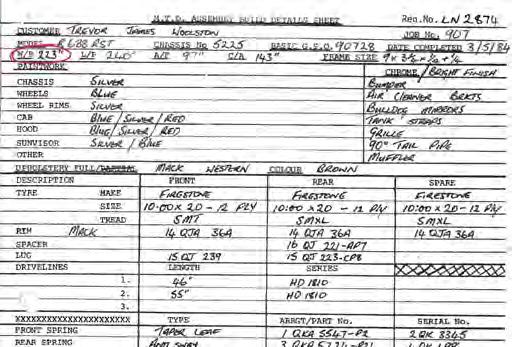 M.T.D. ASSEMBLY BUILD DETAILS SHEET Reg.No. LN 2874
CUSTOMER TREVOR JAMES WOOLSTON JOB No. 907
MODEL R688 RST CHASSIS No 5225 BASIC G.S.O. 90728 DATE COMPLETED 3/5/84
W/B 223" L/F 240" A/F 97" C/A 143" FRAME SIZE
PAINTWORK CHROME/BRIGHT FINISH
CHASSIS SILVER BUMPER
WHEELS BLUE AIR CLEANER BRKTS
WHEEL RIMS SILVER BULLDOG MIRRORS
CAB BLUE/SILVER/RED TANK STRAPS
HOOD BLUE/SILVER/RED GRILLE
SUNVISOR SILVER/BLUE 90° TAIL PIPE
OTHER MUFFLER
UPHOLSTERY FULL/PARTIAL MACK WESTERN COLOUR BROWN
DESCRIPTION FRONT REAR SPARE
TYPE MAKE FIRESTONE FIRESTONE FIRESTONE
SIZE 10·00 X 20 - 12 PLY 10:00 X 20 - 12 PLY 10:00 X 20 - 12 PLY
TREAD SMT SMXL SMXL
RIM MACK 14 QJA 36A 14 QJA 36A 14 QJA 36A
SPACER 16 QJ 221-AP7
LUG 15 QJ 239 15 QJ 223-CP8
DRIVELINES LENGTH SERIES XXXXXXXXXXXXX
1. 46" HD 1810
2. 55" HD 1810
3.
XXXXXXXXXXXXXXXXXXXXXX TYPE ARRGT/PART No. SERIAL No.
FRONT SPRING TAPER LEAF 1 QKA 5547-P2 2 QK 3345
REAR SPRING